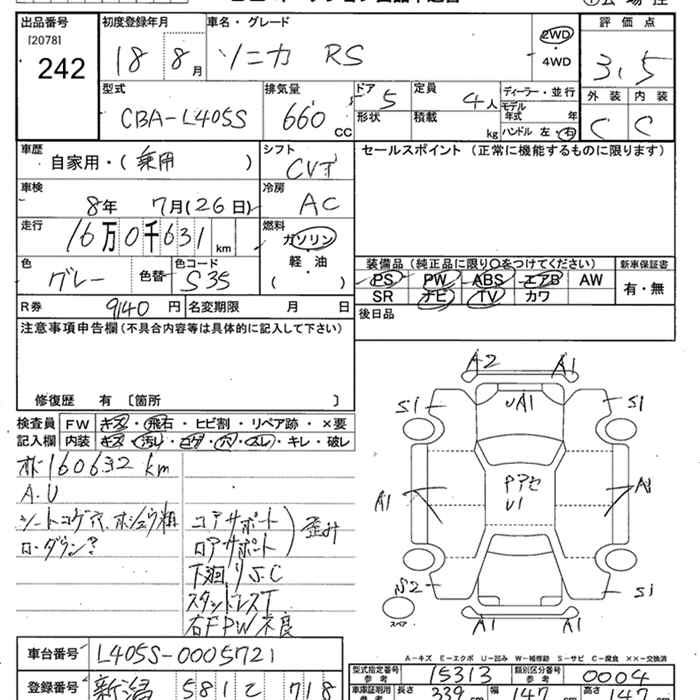 出品番号 初度登録年月 車名・グレード 評価点
[2078]
242
18 8月 ソニカ RS 2WD 4WD 3.5
外装 内装
C C
型式 排気量 ドア 定員 ディーラー・並行
CBA-L405S 660 CC 5 4人 モデル年式 年
形状 積載 kg ハンドル 左・右
車歴 シフト セールスポイント (正常に機能するものに限ります)
自家用・(乗用) CVT
車検 冷房
8年 7月(26日) AC
走行 燃料
16万0千631km ガソリン
軽・油
( )
色 色コード
グレー 色替 S35
装備品 (純正品に限り○をつけてください) 新車保証書
PS PW ABS エアB AW 有・無
SR ナビ TV カワ
R券 9140円 名変期限 月 日 後日品
注意事項申告欄(不具合内容等は具体的に記入して下さい)
修復歴 有 〔箇所 〕
検査員 FW キズ・飛石・ヒビ割・リペア跡・×要
記入欄 内装 キズ・汚レ・コゲ・穴・スレ・キレ・破レ
160632km
A.U
シートコゲ穴、ホシュウ粗
ローダウン?
コアサポート
ロアサポート
歪み
下廻りS.C
スタッドレスT
右FPW不良
A2 A1
S1 UA1 S1
A1 Pアセ U1 A1
S2 S1
スペア A1 A1
A-キズ E-エクボ U-凹み W-補修跡 S-サビ C-腐食 ××-交換済
車台番号 L405S-0005721
型式指定番号 参考 15313 類別区分番号 参考 0004
登録番号 新潟 581 718
車庫証明用 参考 長さ 339cm 幅 147cm 高さ 147cm